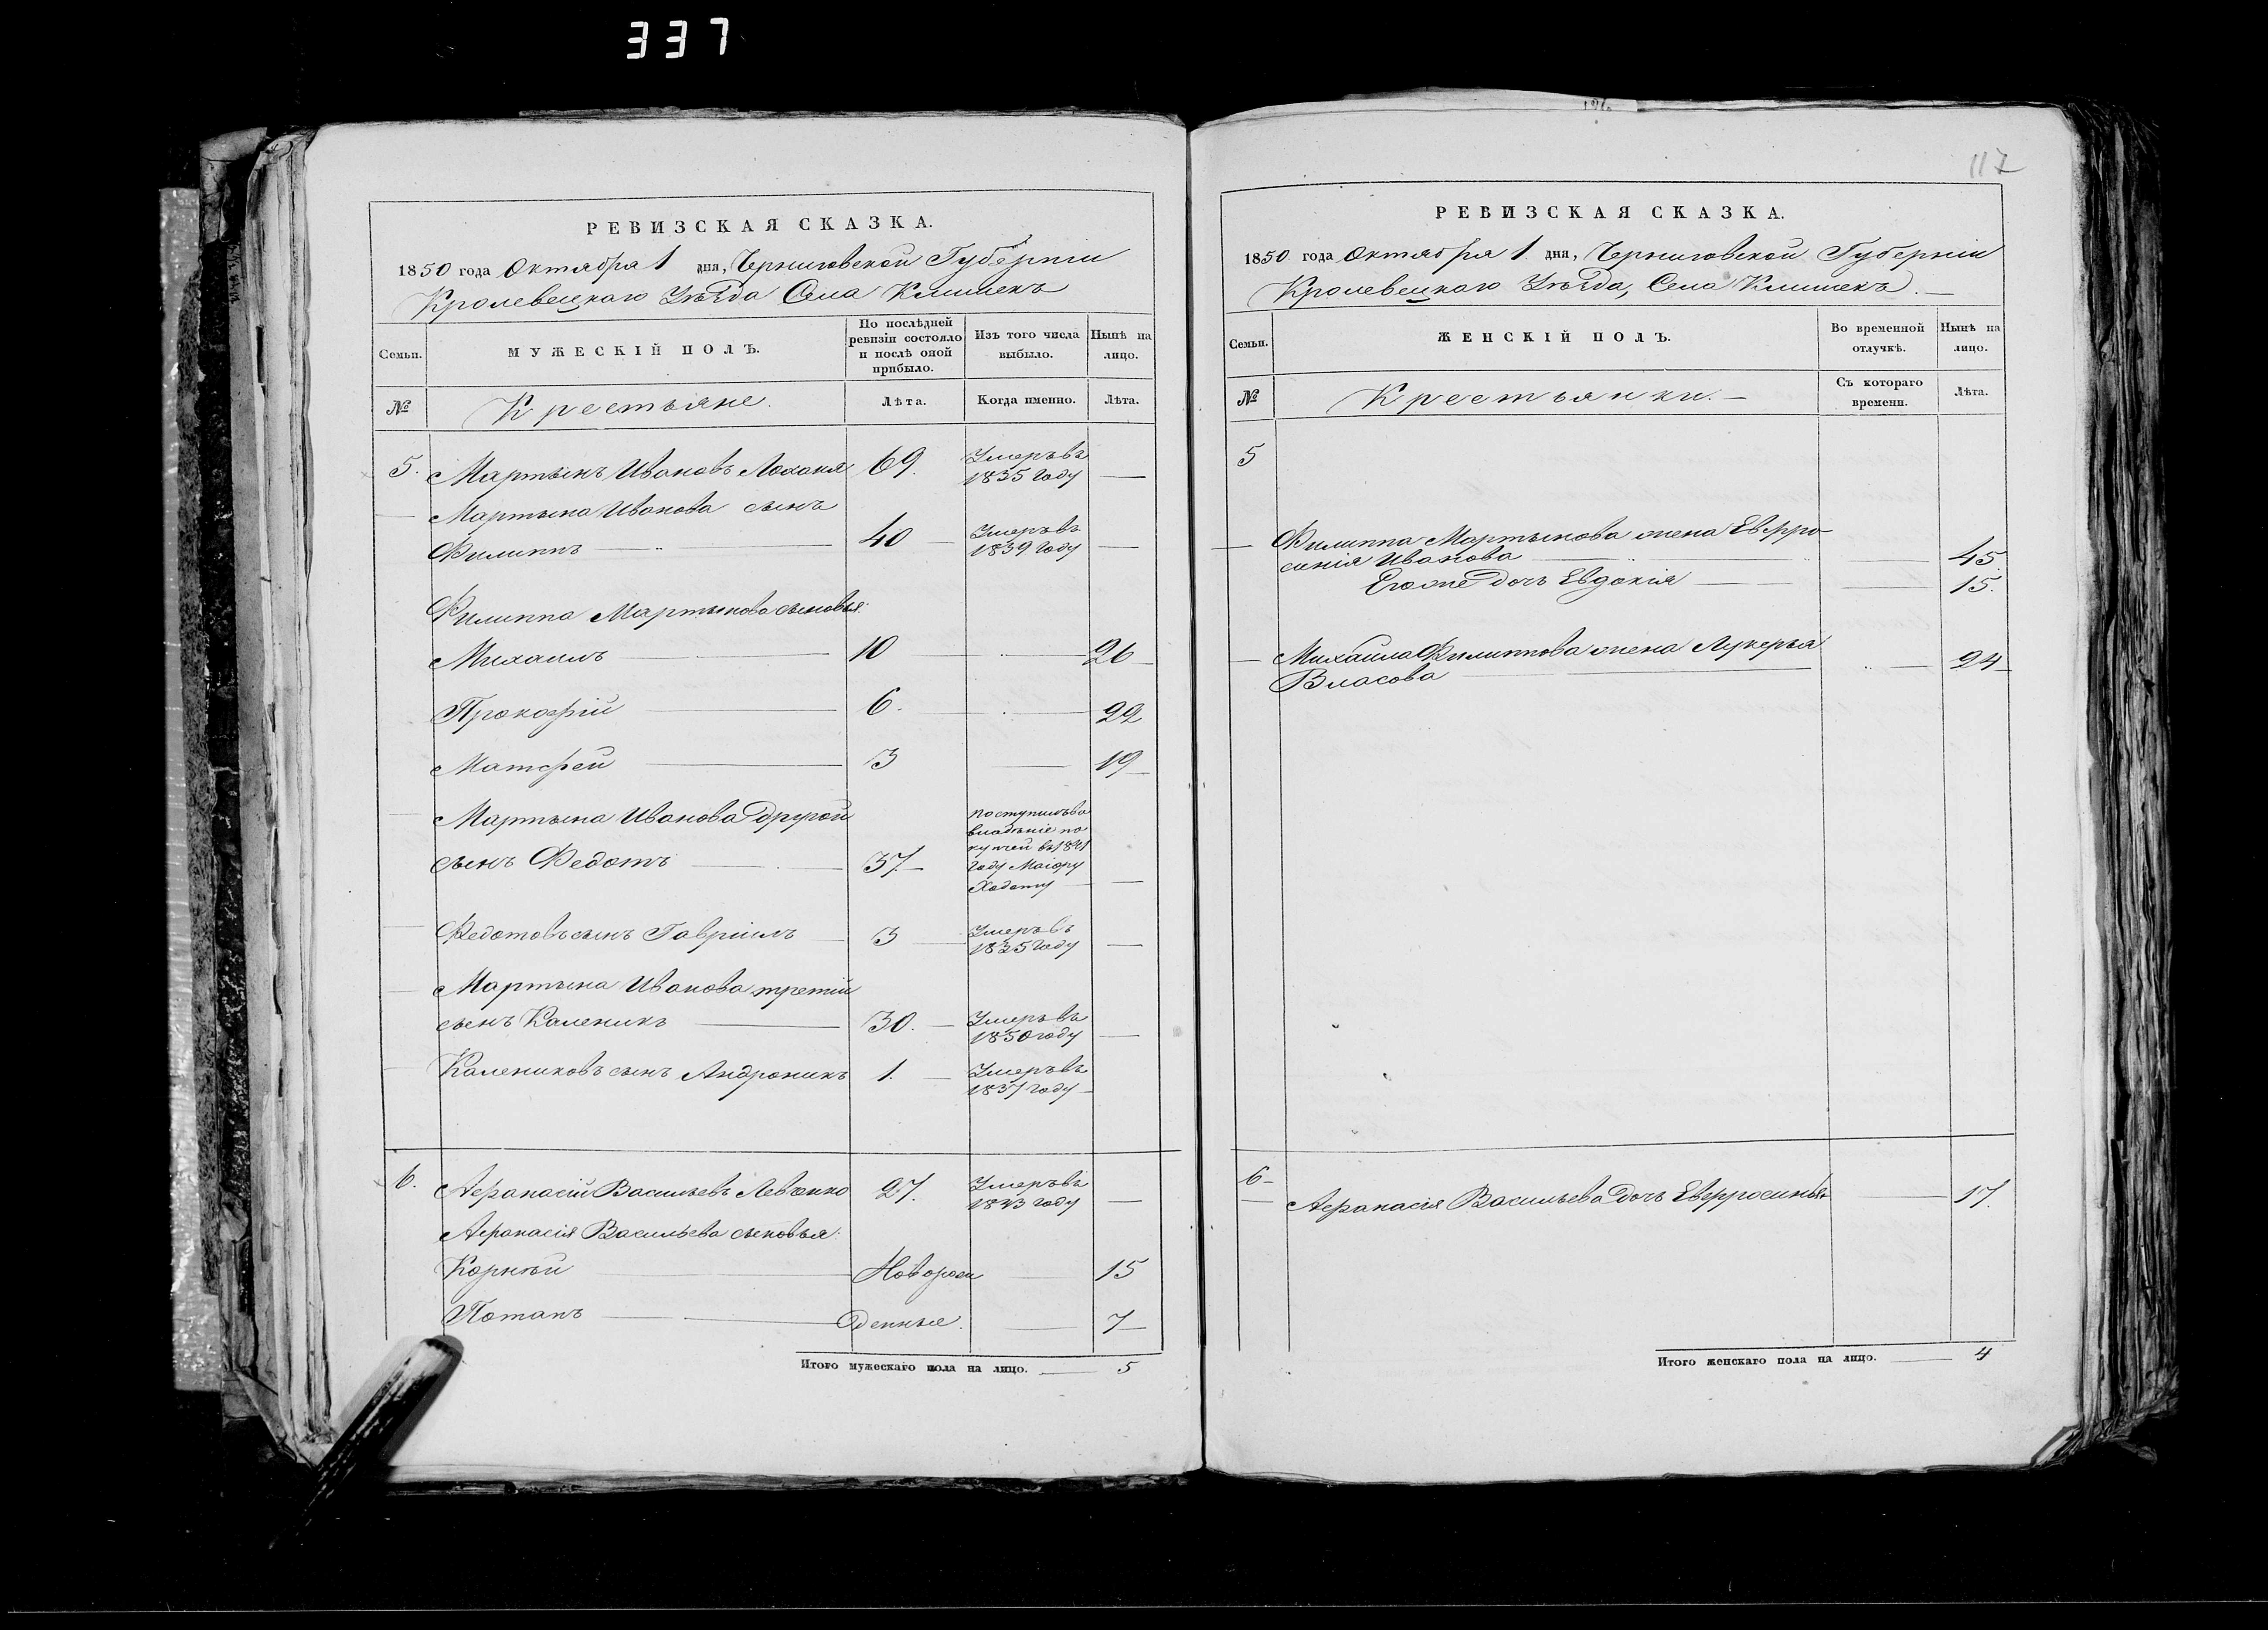 337
РЕВИЗСКАЯ СКАЗКА.
1850 года Октября 1 дня, Черниговской Губерніи
Кролевецкаго Уѣзда Села Клишекъ
Семьи.
МУЖЕСКІЙ ПОЛЪ.
По послѣдней ревизіи состояло и послѣ оной прибыло.
Изъ того числа выбыло.
Нынѣ на лицо.
№
Крестьяне.
Лѣта.
Когда именно.
Лѣта.
5. Мартынъ Ивановъ Лоханя 69. Умеръ въ 1835 году —
Мартына Иванова сынъ
Филиппъ — 40 — Умеръ въ 1839 году —
Филиппа Мартынова сыновья:
Михаилъ — 10 — 26
Прокофій — 6. — 22
Матфей — 3 — 19
Мартына Иванова другой
сынъ Федотъ — 37. — поступилъ во владѣніе по купчей въ 1841 году Маіору —
Федотовъ сынъ Гавріилъ — 3 — Умеръ въ 1835 году —
Мартына Иванова третій
сынъ Каленикъ — 30. — Умеръ въ 1850 году —
Калениковъ сынъ Андроникъ 1. — Умеръ въ 1837 году —
6. Афанасій Васильевъ Левченко 27. Умеръ въ 1843 году —
Афанасія Васильева сыновья:
Корнѣй — Новорож — 15
Потапъ — денные. — 7
Итого мужескаго пола на лицо. — 5
117
РЕВИЗСКАЯ СКАЗКА.
1850 года Октября 1 дня, Черниговской Губерніи
Кролевецкаго Уѣзда, Села Клишекъ. —
Семьи.
ЖЕНСКІЙ ПОЛЪ.
Во временной отлучкѣ.
Нынѣ на лицо.
№
Крестьянки. —
Съ котораго времени.
Лѣта.
5
Филиппа Мартынова жена Евфро-
синія Иванова — 45.
Егоже дочь Евдокія — 15.
Михаила Филиппова жена Лукерья
Власова — 24
6 —
Афанасія Васильева дочь Евфросинья — 17.
Итого женскаго пола на лицо. — 4